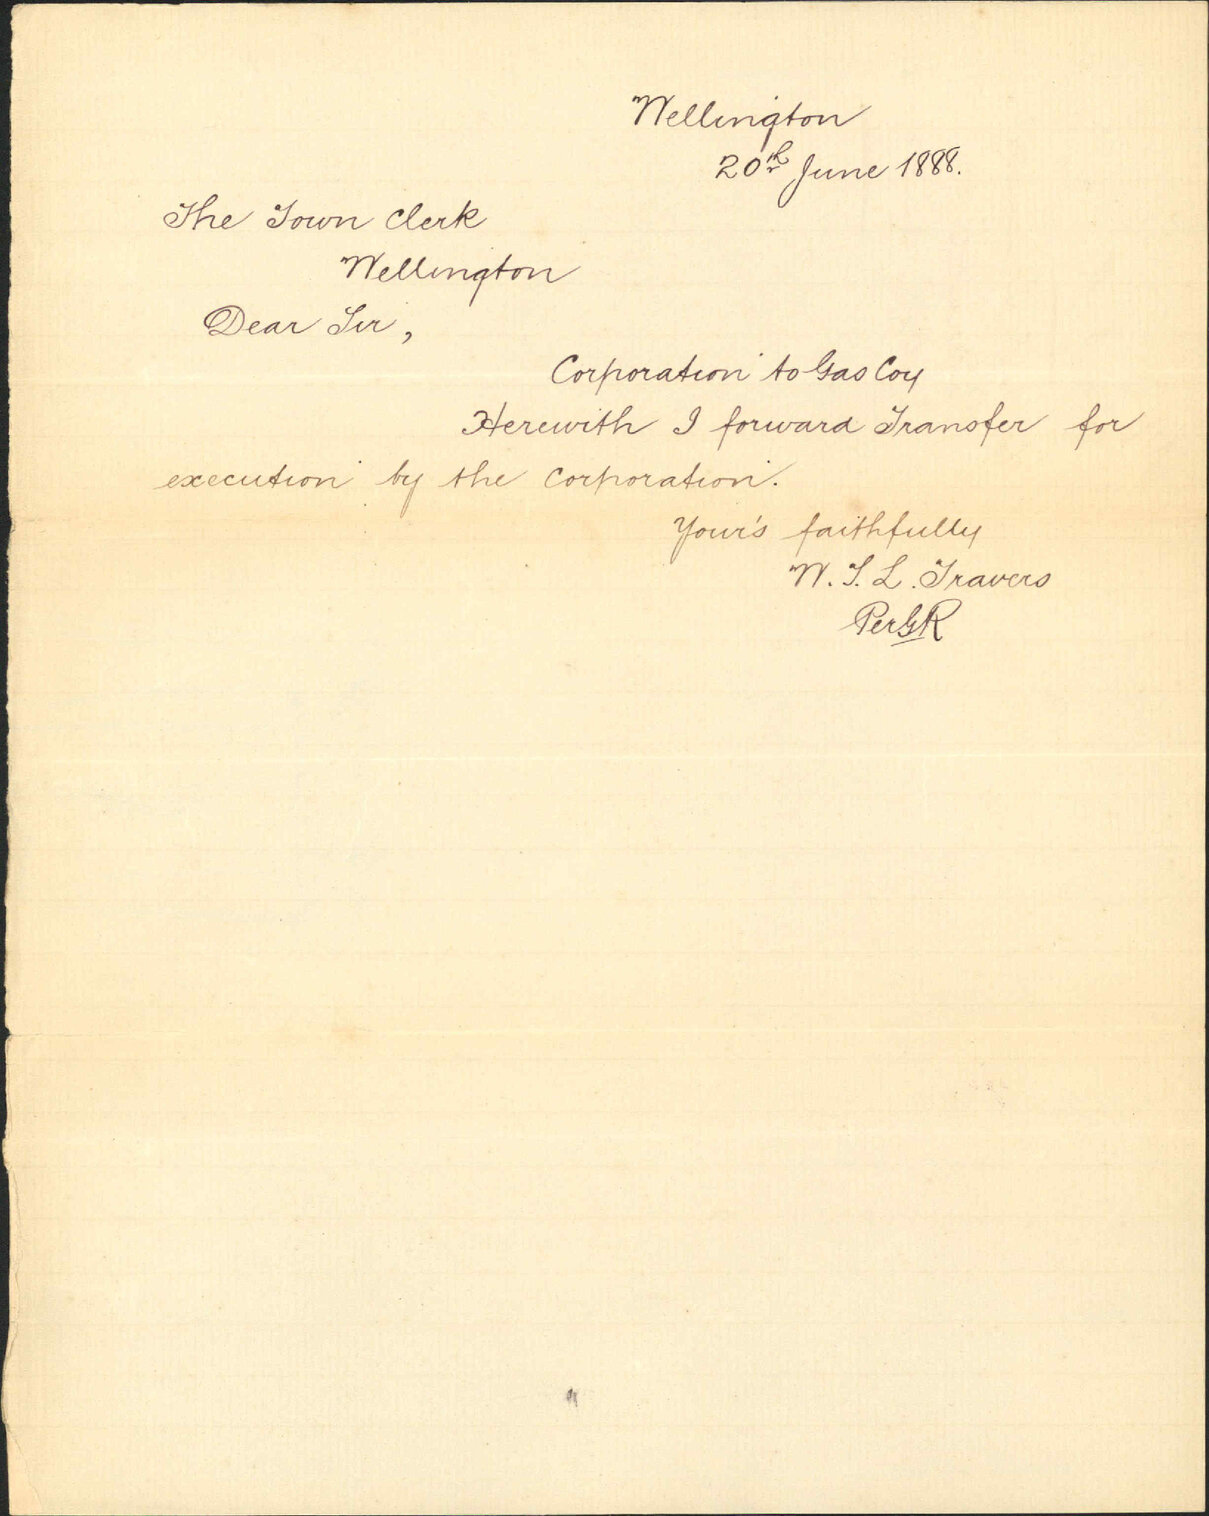 Wellington
20th June 1888.
The Town Clerk
Wellington
Dear Sir,
Corporation to Gas Coy
Herewith I forward Transfer for
execution by the Corporation.
Your's faithfully
W. T. L. Travers
Per GR